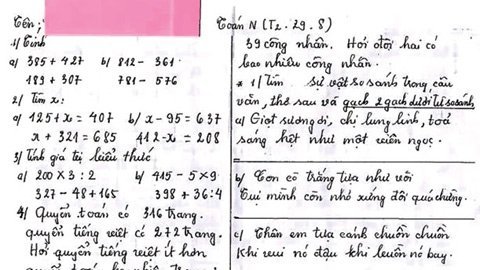 Tên:
1/ Tính
a) 385 + 427 b) 812 - 361
189 + 307 781 - 576
2/ Tìm x:
a) 125 + x = 407 b) x - 95 = 637
x + 321 = 685 412 - x = 208
3/ Tính giá trị biểu thức
a) 200 x 3 : 2 b) 415 - 5 x 9
327 - 48 + 165 398 + 36 : 4
4/ Quyển toán có 316 trang.
quyển tiếng việt có 272 trang.
Hỏi quyển tiếng việt ít hơn
quyển toán
Toán N (T2. 29. 8)
39 công nhân. Hỏi đội hai có
bao nhiêu công nhân.
* 1/ Tìm sự vật so sánh trong câu
văn, thơ sau và gạch 2 gạch dưới từ so sánh
a) Giọt sương ơi, chị lung linh, toả
sáng hệt như một viên ngọc.
b) Con cò trắng tựa như vôi
Tụi mình còn nhỏ xứng đôi quá chừng.
c) Thân em tựa cánh chuồn chuồn
Khi vui nó đậu khi buồn nó bay.